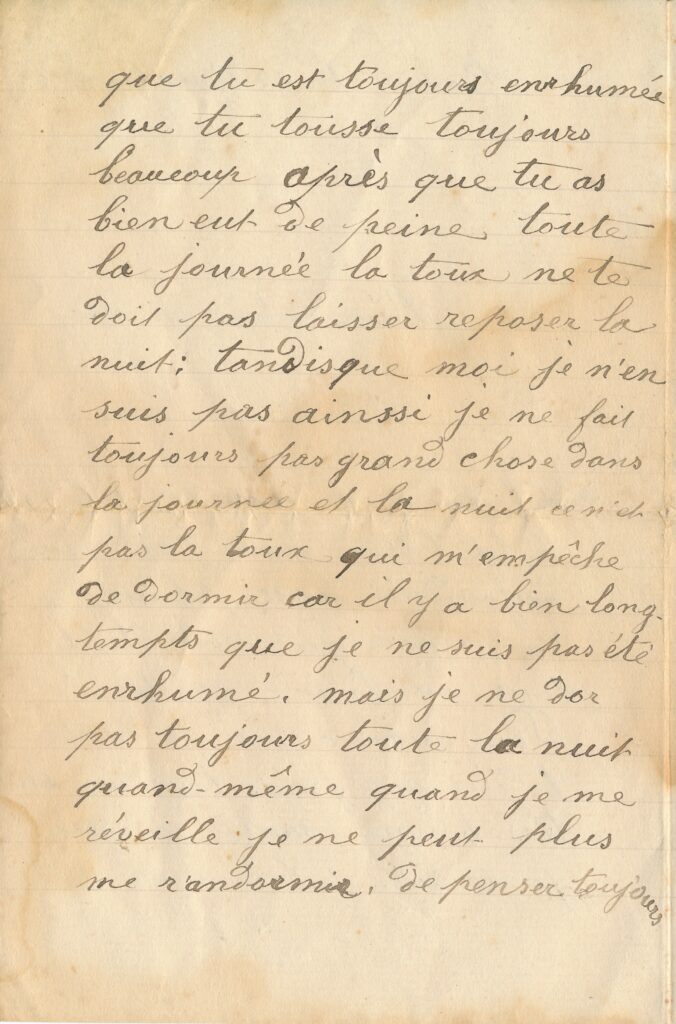 que tu est toujours enrhumée
que tu tousse toujours
beaucoup après que tu as
bien eut de peine toute
la journée la toux ne te
doit pas laisser reposer la
nuit; tandisque moi je n'en
suis pas ainssi je ne fait
toujours pas grand chose dans
la journee et la nuit ce n'et
pas la toux qui m'empêche
de dormir car il y a bien long-
tempts que je ne suis pas été
enrhumé. mais je ne dor
pas toujours toute la nuit
quand-même quand je me
réveille je ne peut plus
me r'andormir. de penser toujours